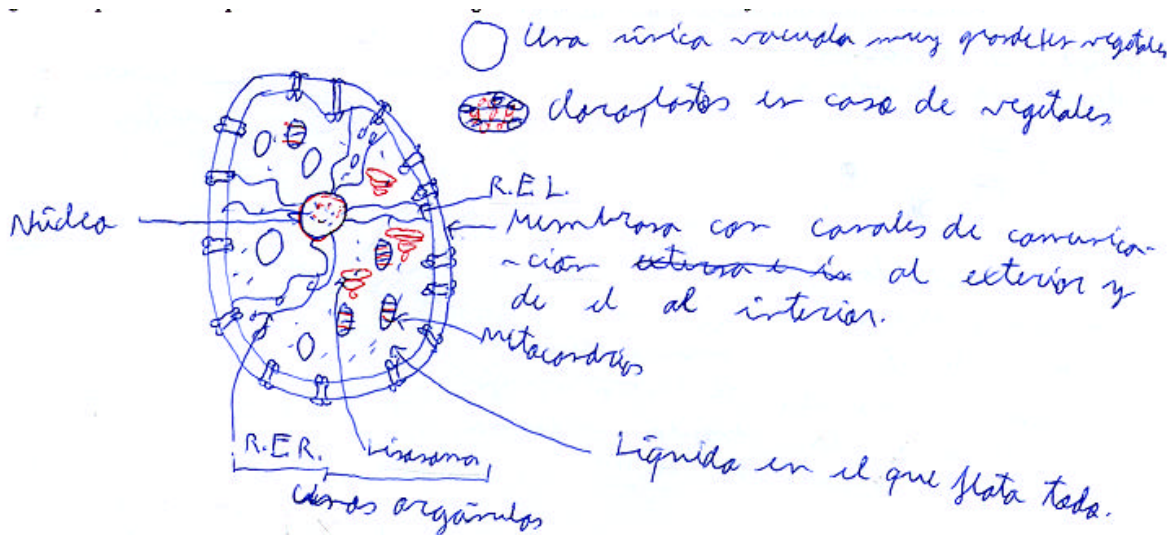 Una única vacuola muy grande en vegetales
cloroplastos en caso de vegetales
R.E.L.
Núcleo
Membrana con canales de comunica-
-ción externa e in al exterior y
de el al interior.
Mitocondrias
R.E.R. Lisosoma
orgánulos
Líquido en el que flota todo.